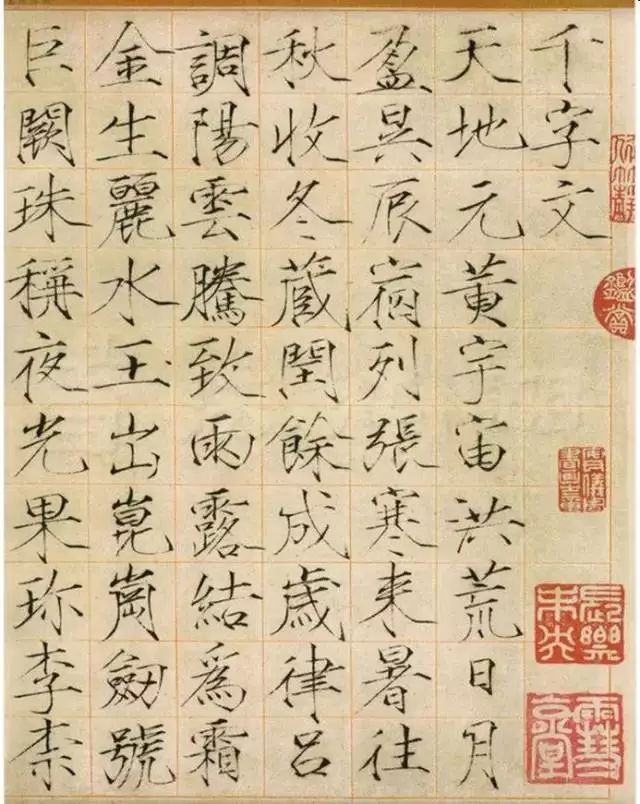 千字文
天地元黄宇宙洪荒日月
盈昃辰宿列張寒来暑往
秋收冬蔵閏餘成歲律吕
調陽雲騰致雨露結爲霜
金生麗水玉出崑崗劒號
巨闕珠稱夜光果珍李柰
鑑賞
長樂未央